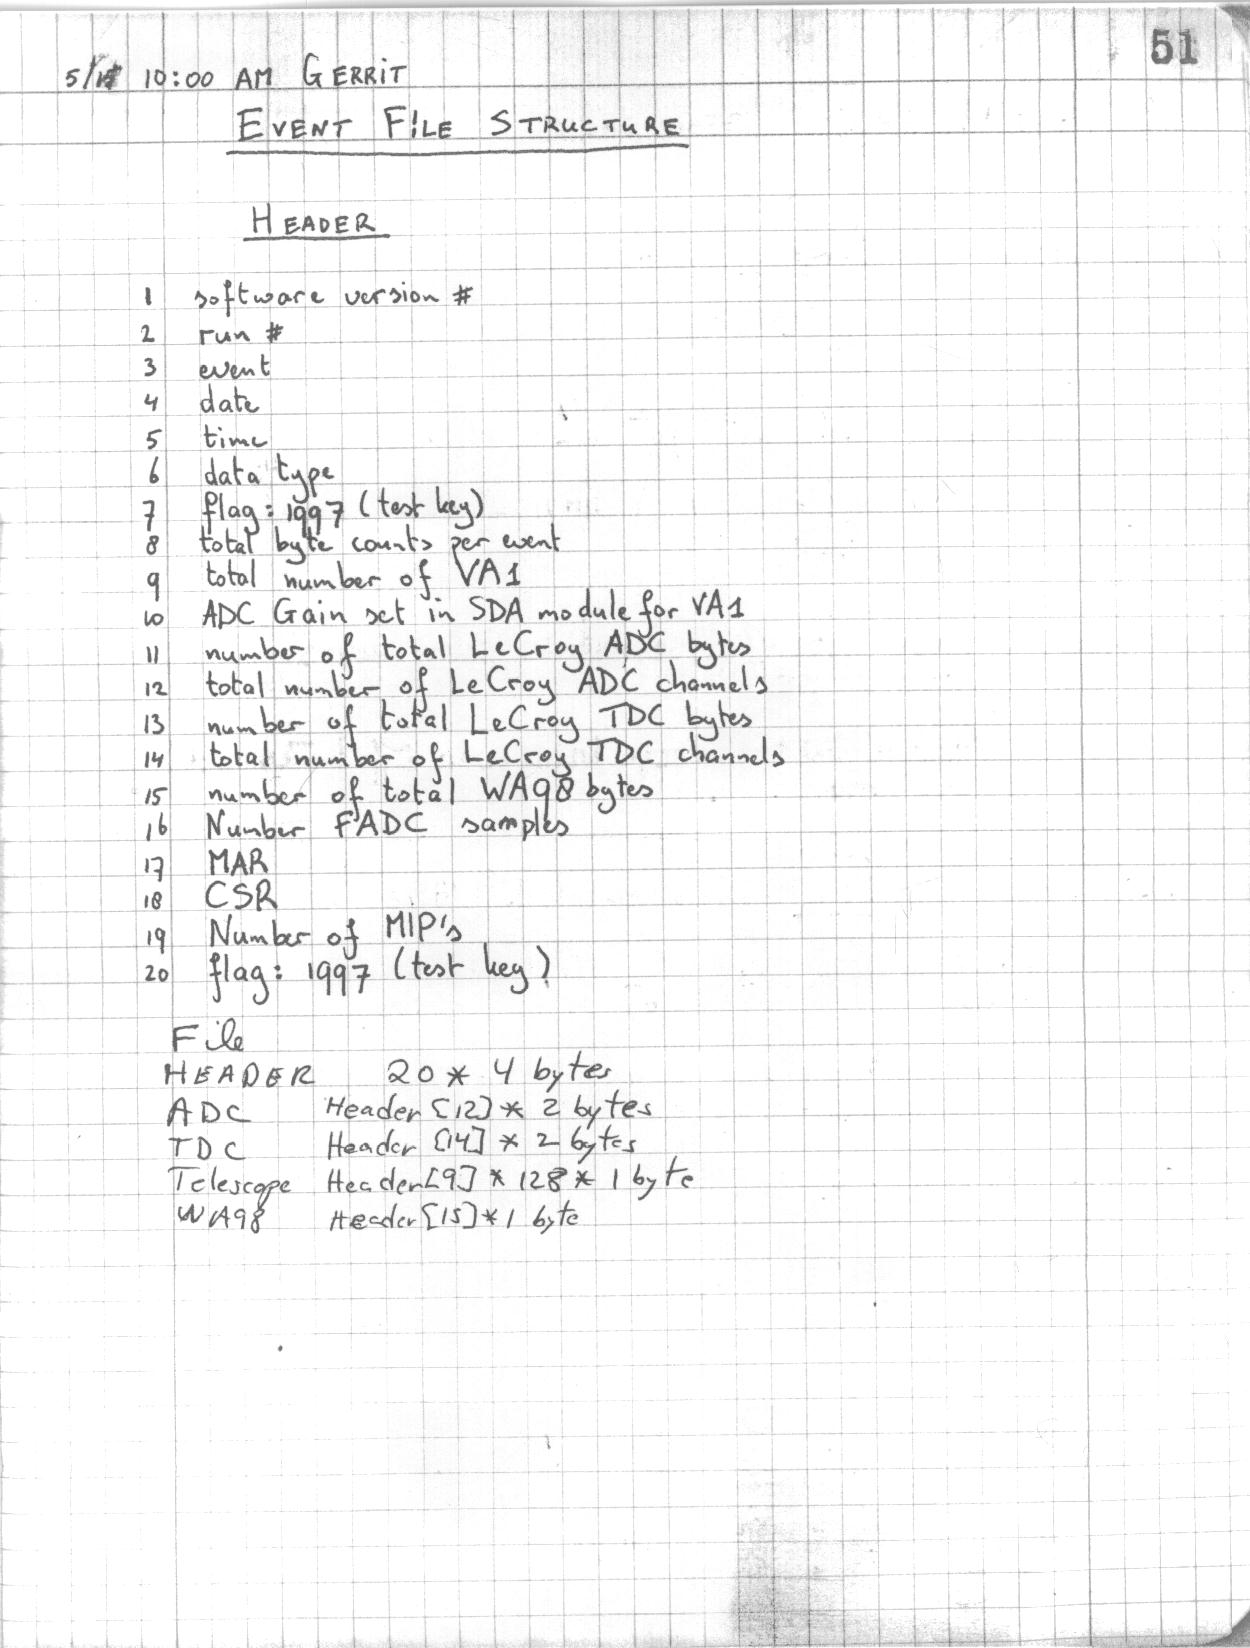 51
10:00 AM GERRIT
EVENT FILE STRUCTURE
HEADER
1 software version #
2 run #
3 event
4 date
5 time
6 data type
7 flag: 1997 (test key)
8 total byte counts per event
9 total number of VA1
10 ADC Gain set in SDA module for VA1
11 number of total LeCroy ADC bytes
12 total number of LeCroy ADC channels
13 number of total LeCroy TDC bytes
14 total number of LeCroy TDC channels
15 number of total WA98 bytes
16 Number FADC samples
17 MAR
18 CSR
19 Number of MIP's
20 flag: 1997 (test key)
File
HEADER 20 * 4 bytes
ADC Header [12] * 2 bytes
TDC Header [14] * 2 bytes
Telescope Header [9] * 128 * 1 byte
WA98 Header [15] * 1 byte